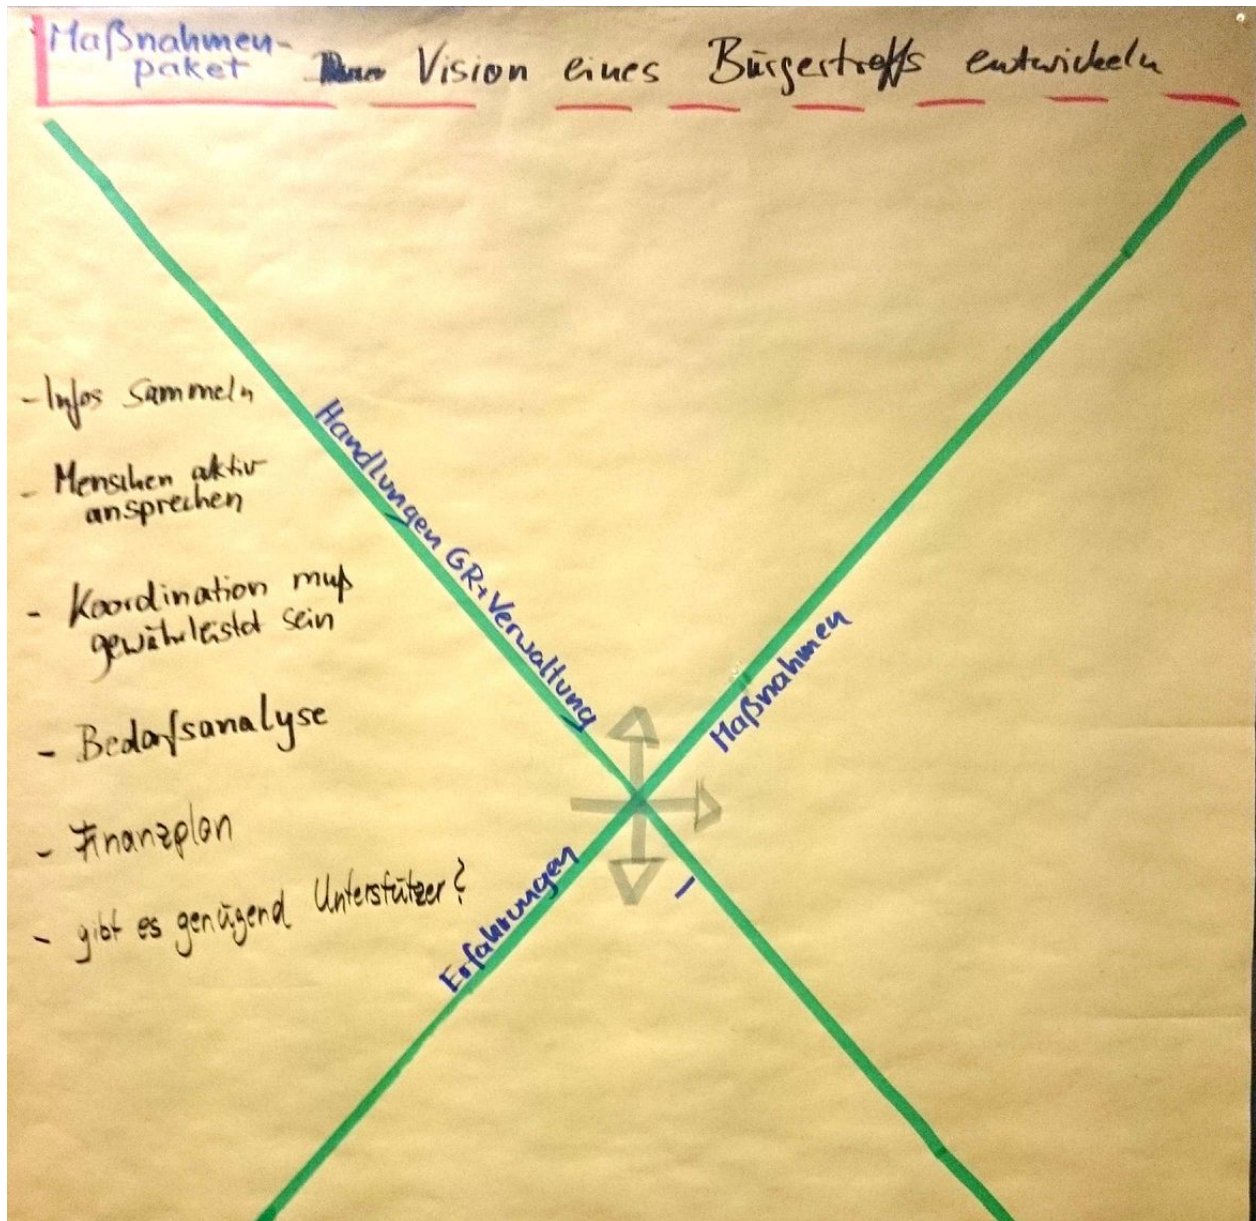 Maßnahmen-
paket
Vision eines Bürgertreffs entwickeln
- Infos sammeln
- Menschen aktiv
ansprechen
- Koordination muß
gewährleistet sein
- Bedarfsanalyse
- Finanzplan
- gibt es genügend Unterstützer?
Handlungen GR+Verwaltung
Maßnahmen
Erfahrungen